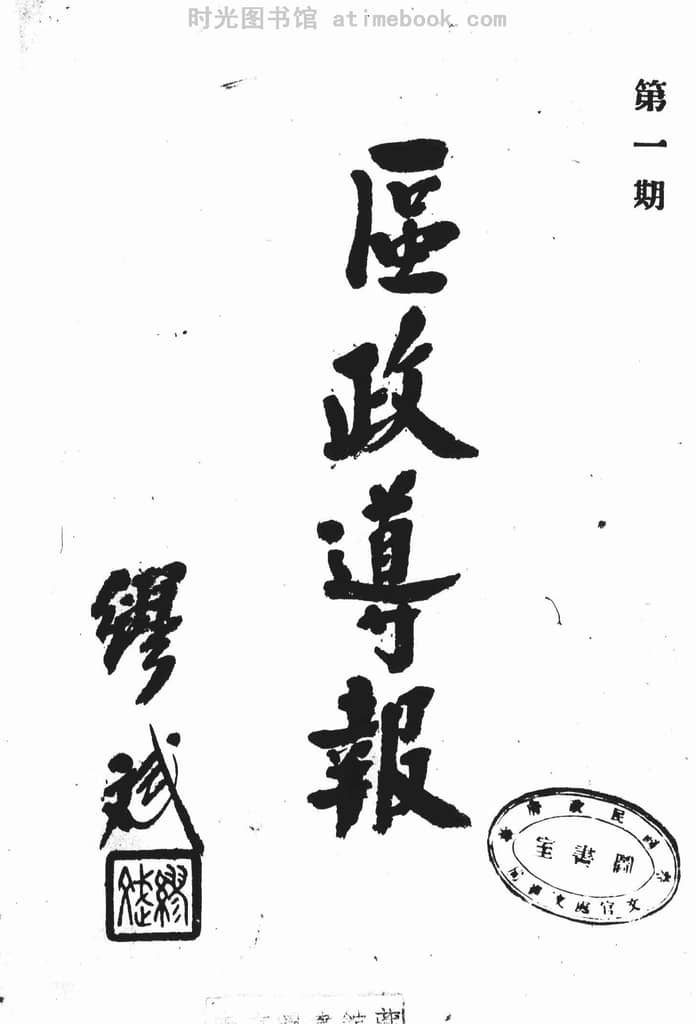 时光图书馆 atimebook.com
第一期
區政導報
繆斌
繆斌
圖書室